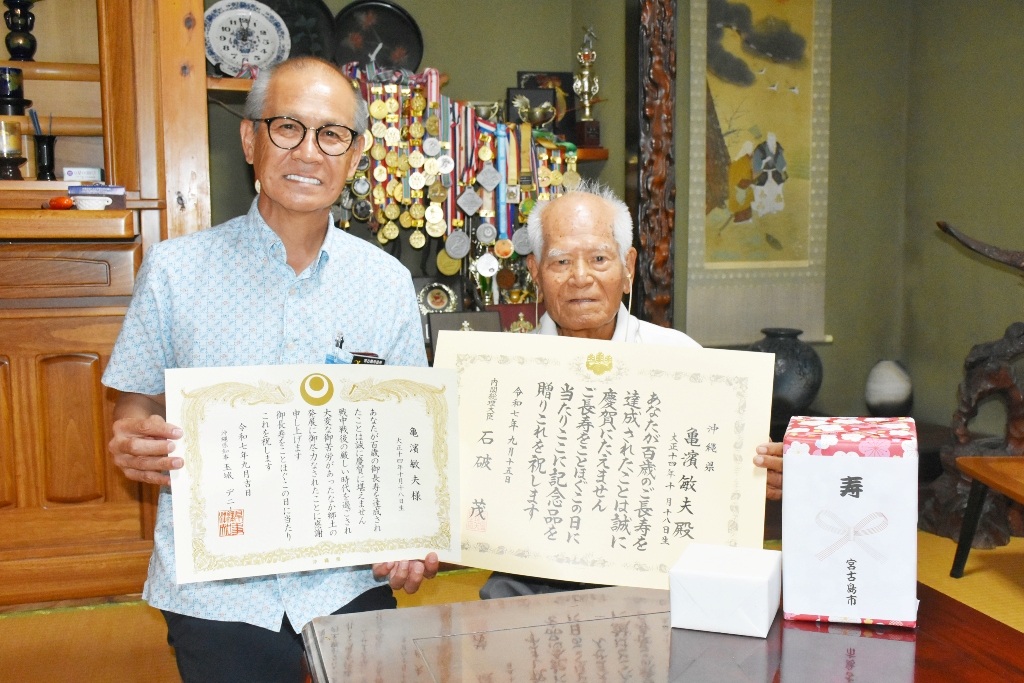 亀濱敏夫様
大正十四年十月十八日生
あなたが百歳の御長寿を達成され
たことは誠に慶賀に堪えません
戦中戦後の厳しい時代を過ごされ
大変な御苦労があったなか郷土の
発展に御尽力なされたことに感謝
申し上げます
御長寿をことほぐこの日に当たり
これを祝します
令和七年九月吉日
沖縄県知事 玉城 デニー
沖縄県
亀濱敏夫殿
大正十四年十月十八日生
あなたが百歳のご長寿を
達成されたことは誠に
慶賀にたえません
ご長寿をことほぐこの日に
当たりここに記念品を
贈りこれを祝します
令和七年九月十五日
内閣総理大臣 石破 茂
寿
宮古島市